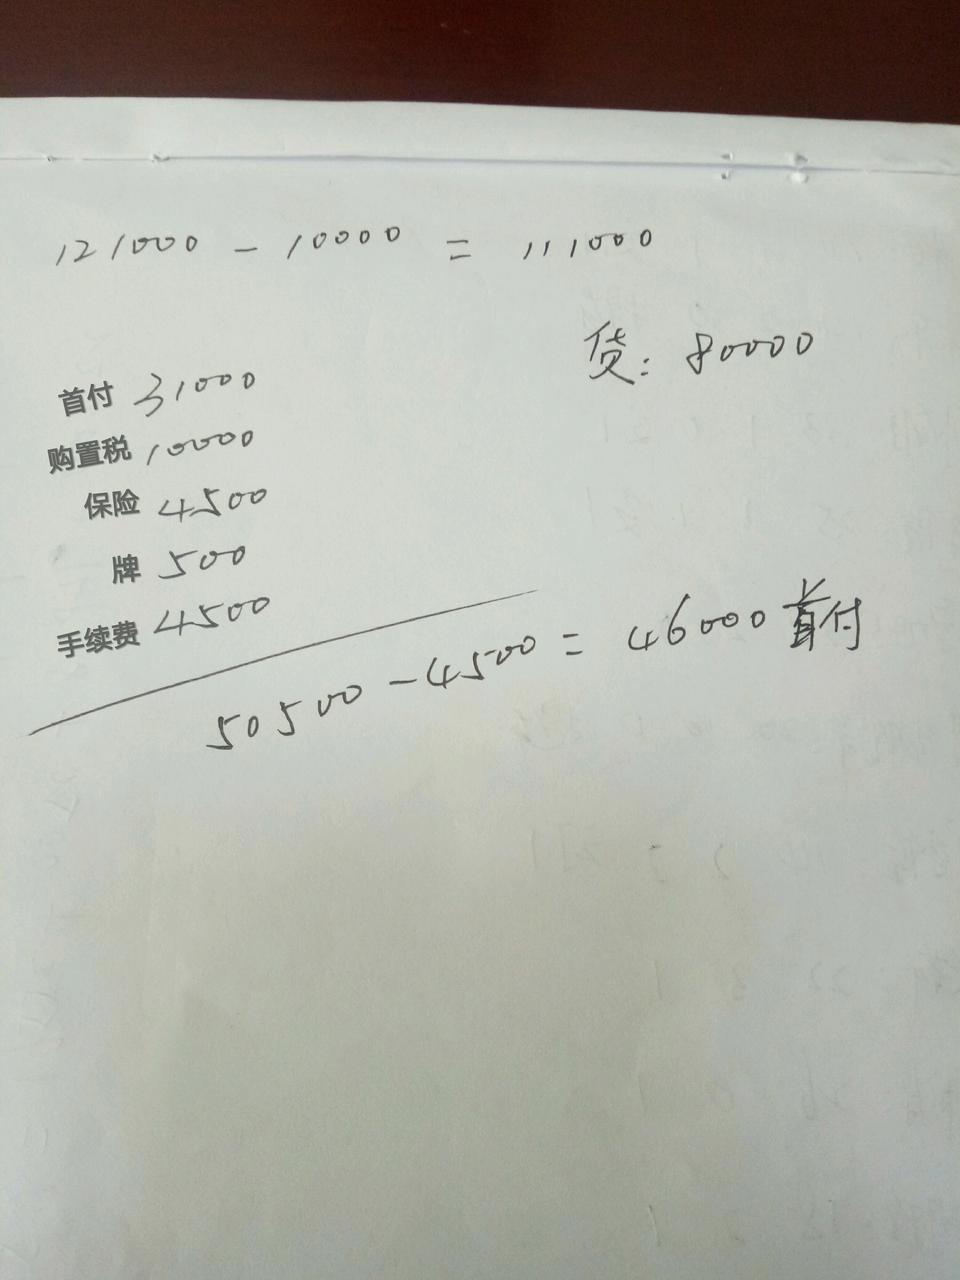 121000 - 10000 = 111000
贷: 80000
首付 31000
购置税 10000
保险 4500
牌 500
手续费 4500
50500 - 4500 = 46000 首付